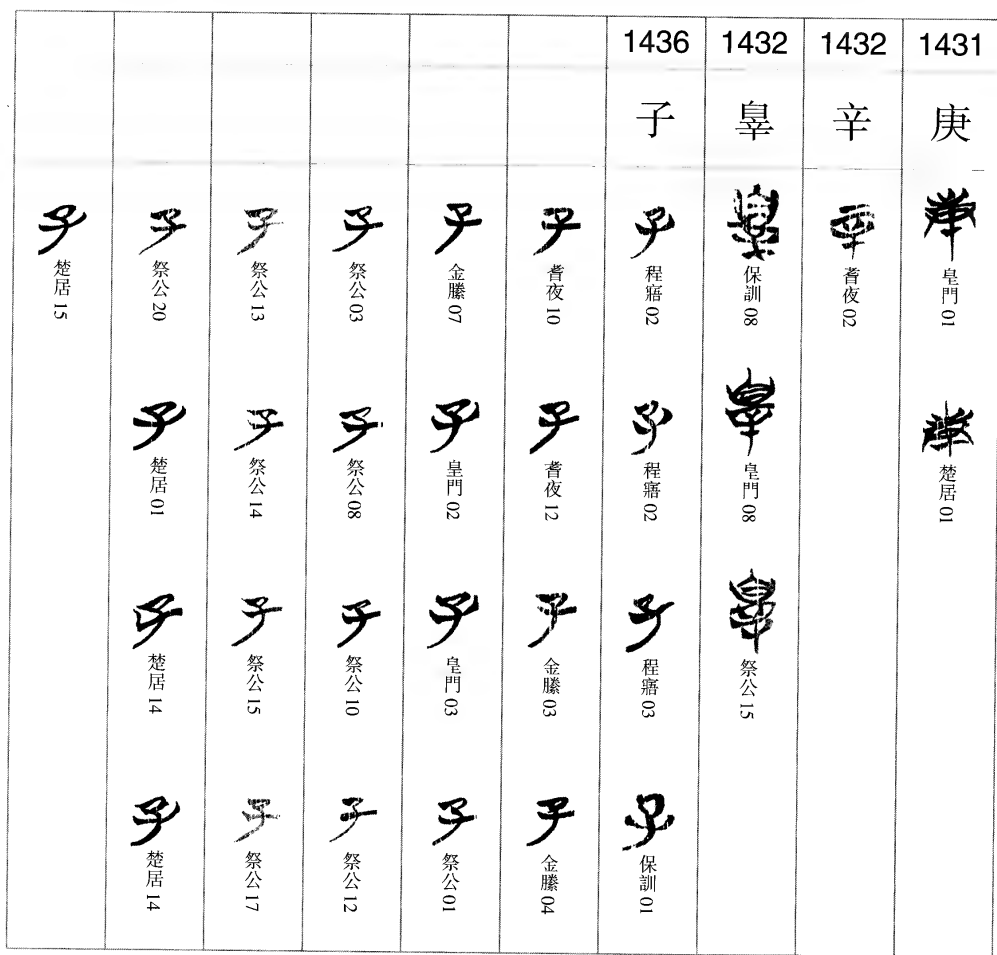 1431
庚
皇門 01
楚居 01
1432
辛
耆夜 02
1432
辠
保訓 08
皇門 08
祭公 15
1436
子
程寤 02
程寤 02
程寤 03
保訓 01
耆夜 10
耆夜 12
金縢 03
金縢 04
金縢 07
皇門 02
皇門 03
祭公 01
祭公 03
祭公 08
祭公 10
祭公 12
祭公 13
祭公 14
祭公 15
祭公 17
祭公 20
楚居 01
楚居 14
楚居 14
楚居 15